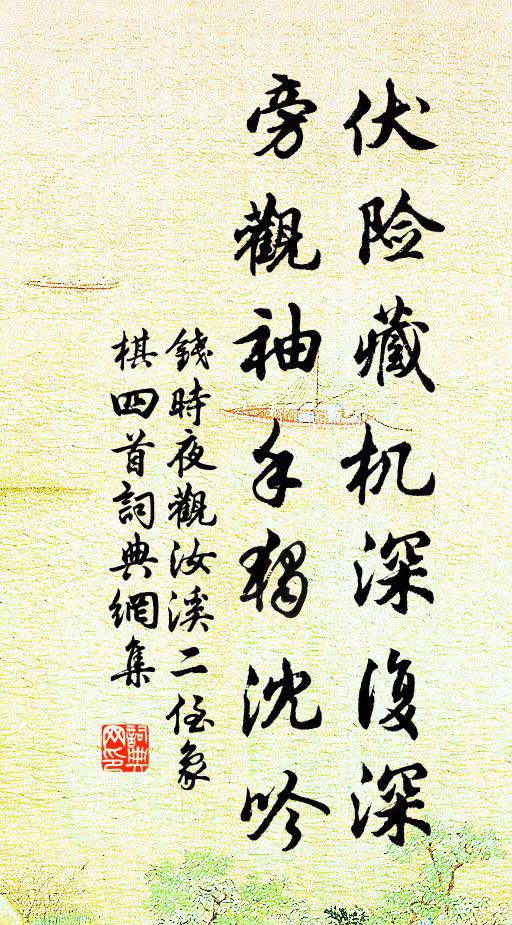 伏险藏机深复深
旁觀袖手獨沈吟
錢時夜觀汝溪二侄象
棋四首詞典網集
詞典
网印